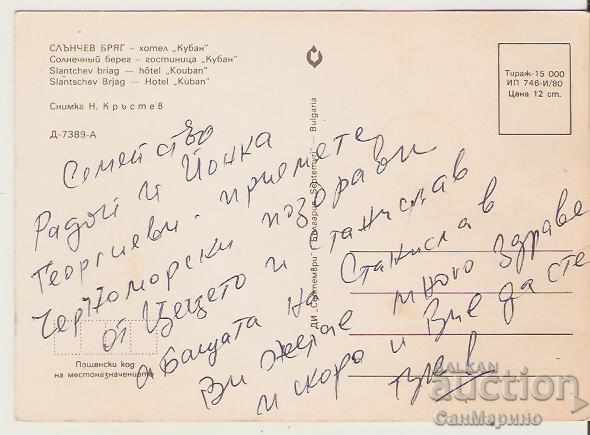 СЛЪНЧЕВ БРЯГ – хотел „Кубан"
Солнечный берег – гостиница „Кубан"
Slantchev briag – hôtel „Kouban"
Slantschev Brjag – Hotel „Kuban"
Снимка Н. Кръстев
Д-7389-А
Тираж-15 000
ИП 746-И/80
Цена 12 ст.
ДИ „Септември" България „Septemvri" — Bulgaria
Семейство
Радой и Йонка
Георгиеви. приемете
Черноморски поздрави
от Цецето и Станислав
а бащата на Станислав
Ви желае много здраве
и скоро и Вие да сте
тук
Пощенски код
на местоназначението
BALKAN
auction
СанМарино